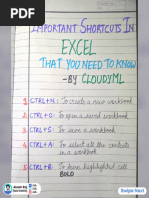 IMPORTANT SHORTCUTS IN
EXCEL
THAT YOU NEED TO KNOW
-BY CLOUDYML
1 CTRL+N : To create a new workbook
2 CTRL+O : To open a saved workbook
3 CTRL+S : To save a workbook
4 CTRL+A : To select all the contents
in a workbook
5 CTRL+B : To turn highlighted cell
BOLD
Swipe Next